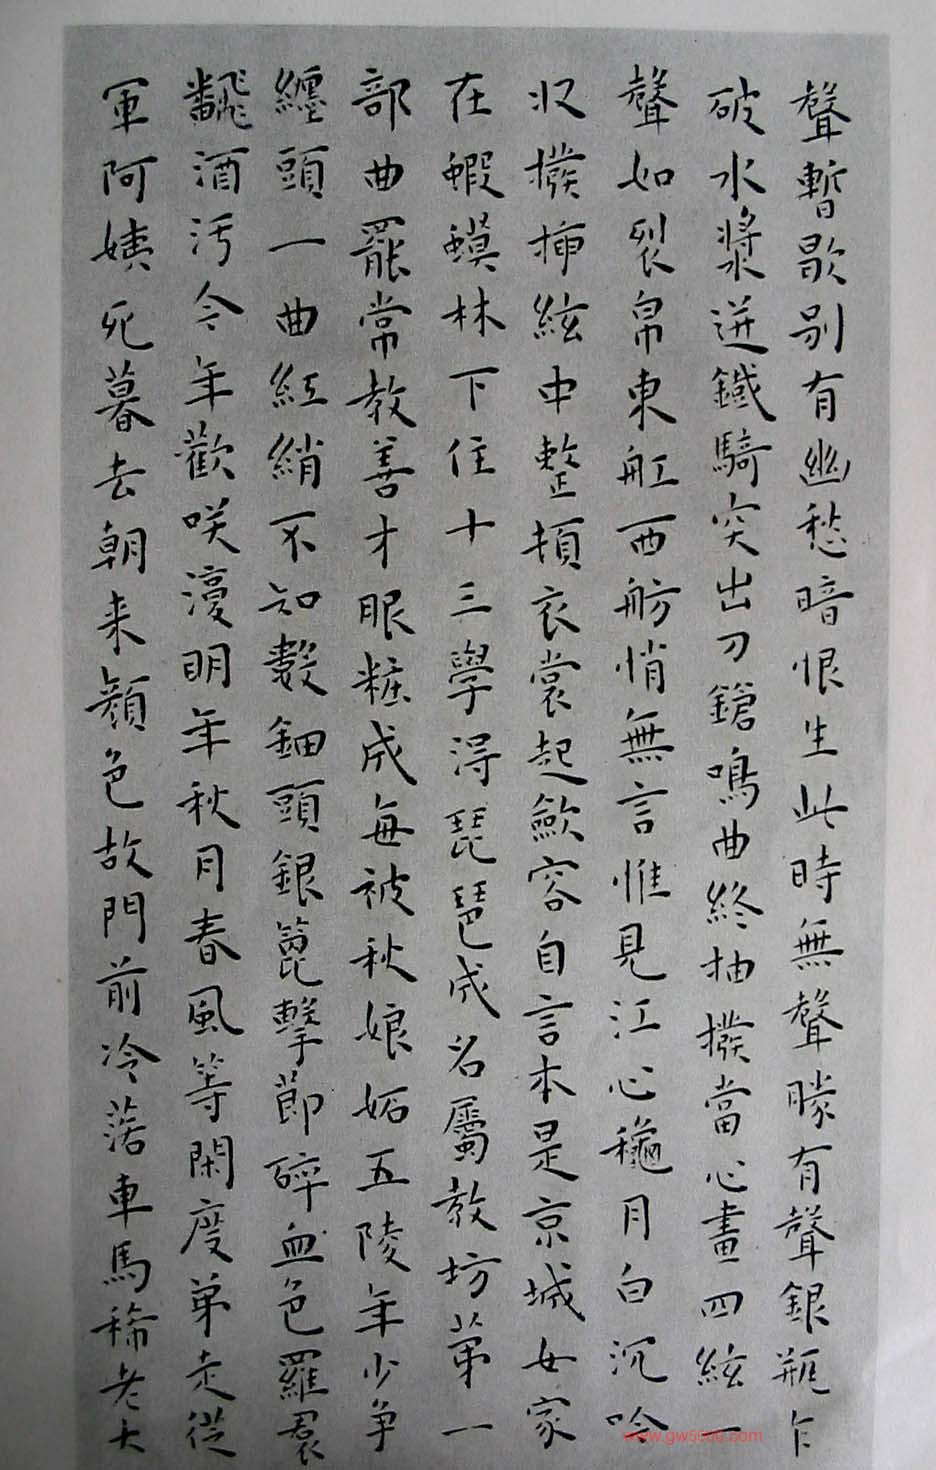 聲暫歇别有幽愁暗恨生此時無聲勝有聲銀瓶乍
破水漿迸鐵騎突出刀鎗鳴曲終抽撥當心畫四絃一
聲如裂帛東舡西舫悄無言惟見江心秋月白沉吟
収撥挿絃中整頓衣裳起歛容自言本是京城女家
在蝦蟆林下住十三學得琵琶成名屬教坊苐一
部曲罷常教善才眼粧成每被秋娘妬五陵年少争
纏頭一曲紅綃不知數鈿頭銀篦擊節碎血色羅裙
飜酒汚今年歡咲復明年秋月春風等閑度弟走從
軍阿姨死暮去朝来顔色故門前冷落車馬稀老大
www.gw5000.com